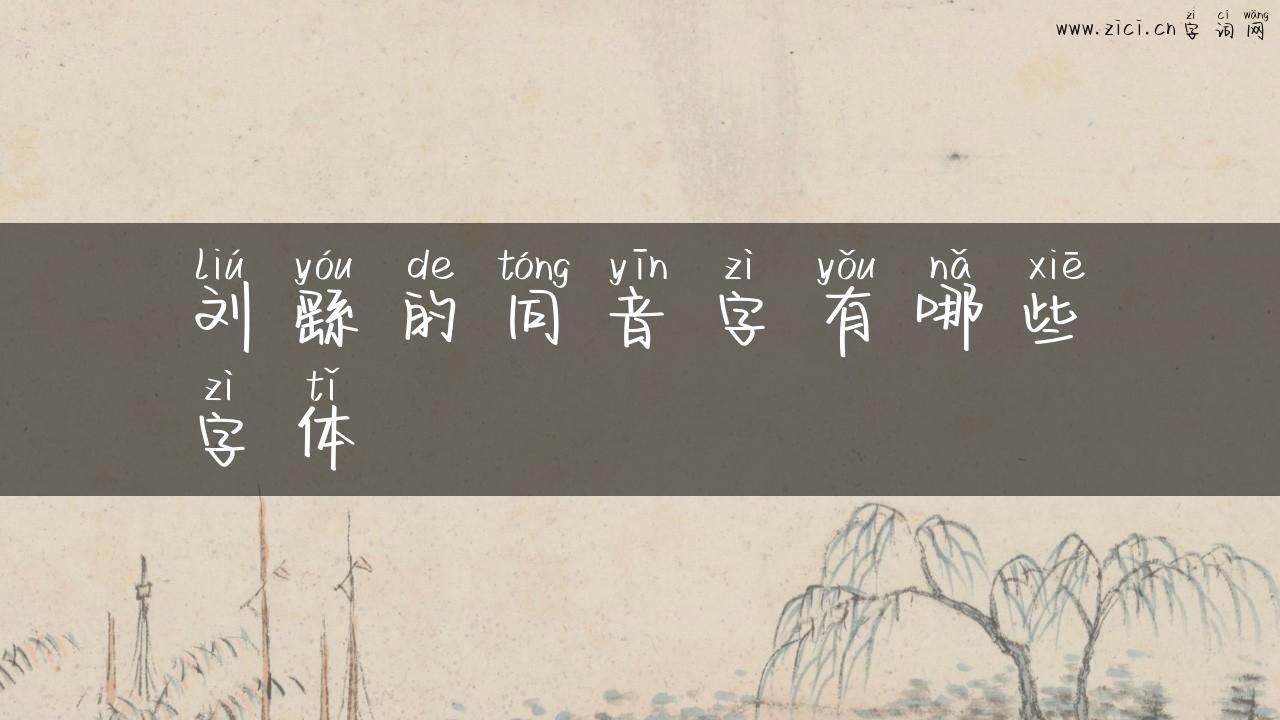 zì cí wǎng
www.zici.cn 字 词 网
liú yóu de tóng yīn zì yǒu nǎ xiē
刘 繇 的 同 音 字 有 哪 些
zì tǐ
字 体